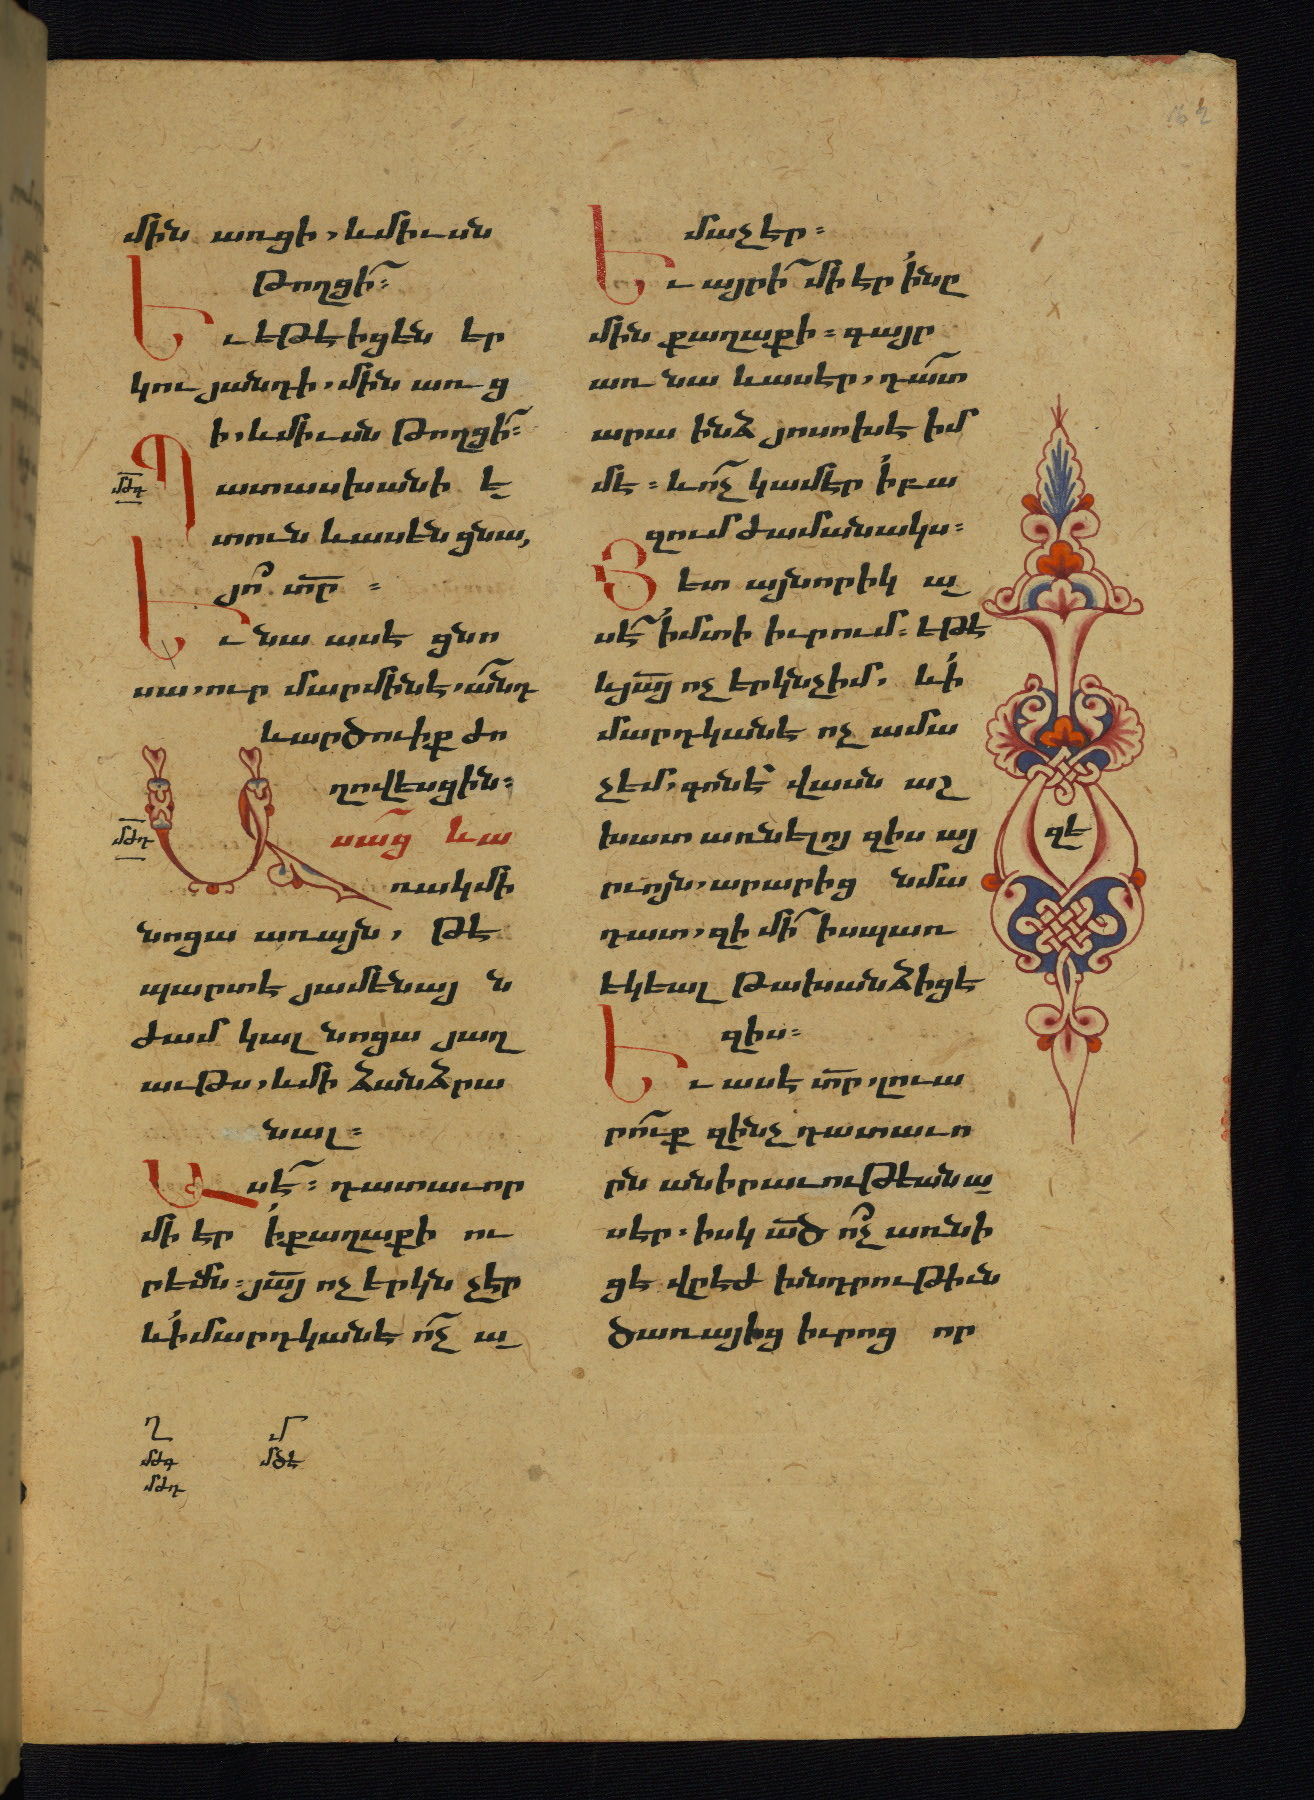 մինն առցի, և միւսն
թողցի՜։
Եւ եթէ իցեն եր
կու յանդի, մինն առց
ի, և միւսն թողցի՜։
մժդ
Պատասխանի ե
տուն և ասեն ցնա,
յո՞ տր ։
Եւ նա ասէ ցնո
սա, ուր մարմինն է, անդ
և արծուիք ժո
ղովեսցին։
մժդ
Ասաց և ա
ռակ մի
նոցա առ այն, թէ
պարտ է յամենայ ն
ժամ կալ նոցա յաղ
աւթս, և մի ձանձրա
նալ։
Ասէ՜ ։ դատաւոր
մի էր ի քաղաքի ու
րեմն ։ յայ ոչ երկն չէր
և ի մարդկանէ ոչ ա
մաչէր։
Եւ այրի՜ մի էր ի նը
մին քաղաքի ։ գայր
առ նա և ասէր, դատ
արա ինձ յոսոխէ իմ
մէ ։ և ոչ կամէր ի բա
զում ժամանակս։
Յետ այնորիկ ա
սէ՜ ի մտի իւրում ։ եթէ
և յայ ոչ երկնչիմ, և ի
մարդկանէ ոչ ամա
չեմ, գոնե՛ վասն աշ
խատ առնելոյ զիս այ
րւոյն, արարից նմա
դատ, զի մի՜ իսպառ
եկեալ թախանձիցէ
զիս։
Եւ ասէ տր, լուա
րո՜ւք զինչ դատաւո
րն անիրաւութեան ա
սէր ։ իսկ ած ո՞չ առնի
ցե վրէժ խնդրութիւն
ծառայից իւրոց որ
զէ
Ղ
մժգ
մժդ
Մ
մծէ